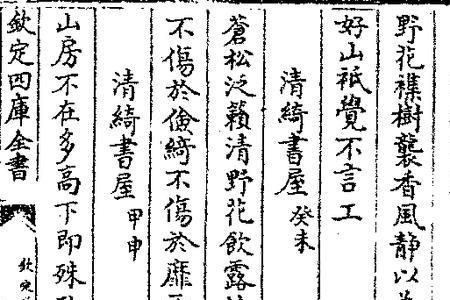 野花襍樹襲香風静以
好山祗覺不言工
清綺書屋 癸未
蒼松泛籟清野花飲露
不傷於儉綺不傷於靡
清綺書屋 甲申
山房不在多高下即殊
欽定四庫全書 欽定